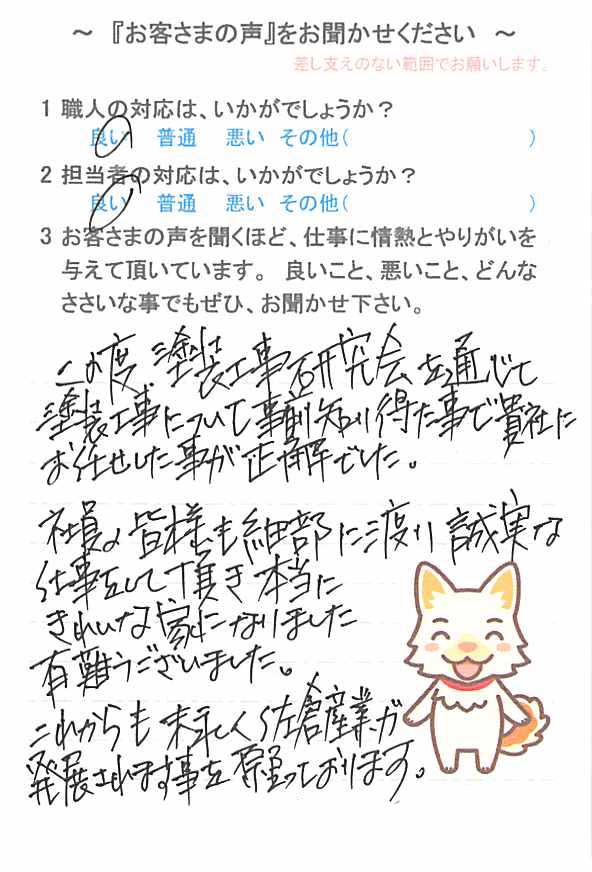 ～ 『お客さまの声』をお聞かせください ～
差し支えのない範囲でお願いします。
1 職人の対応は、いかがでしょうか？
良い 普通 悪い その他( )
2 担当者の対応は、いかがでしょうか？
良い 普通 悪い その他( )
3 お客さまの声を聞くほど、仕事に情熱とやりがいを
与えて頂いています。 良いこと、悪いこと、どんな
ささいな事でもぜひ、お聞かせ下さい。
この度、塗装工事研究会を通じて
塗装工事について事前知り得た事で貴社に
お任せした事が正解でした。
社員の皆様も細部に渡り誠実な
仕事をして頂き本当に
きれいな家になりました
有難うございました。
これからも末永く佐倉産業が
発展されます事を願っております。